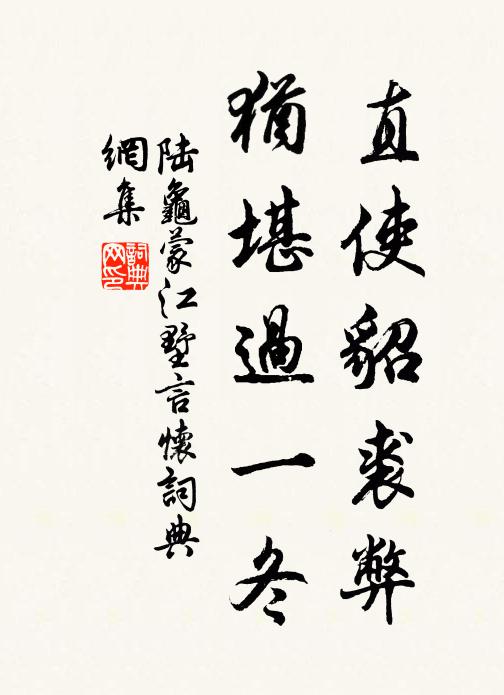 直使貂裘弊
猶堪過一冬
陸龜蒙江墅言懷詞典
網集
詞典网印